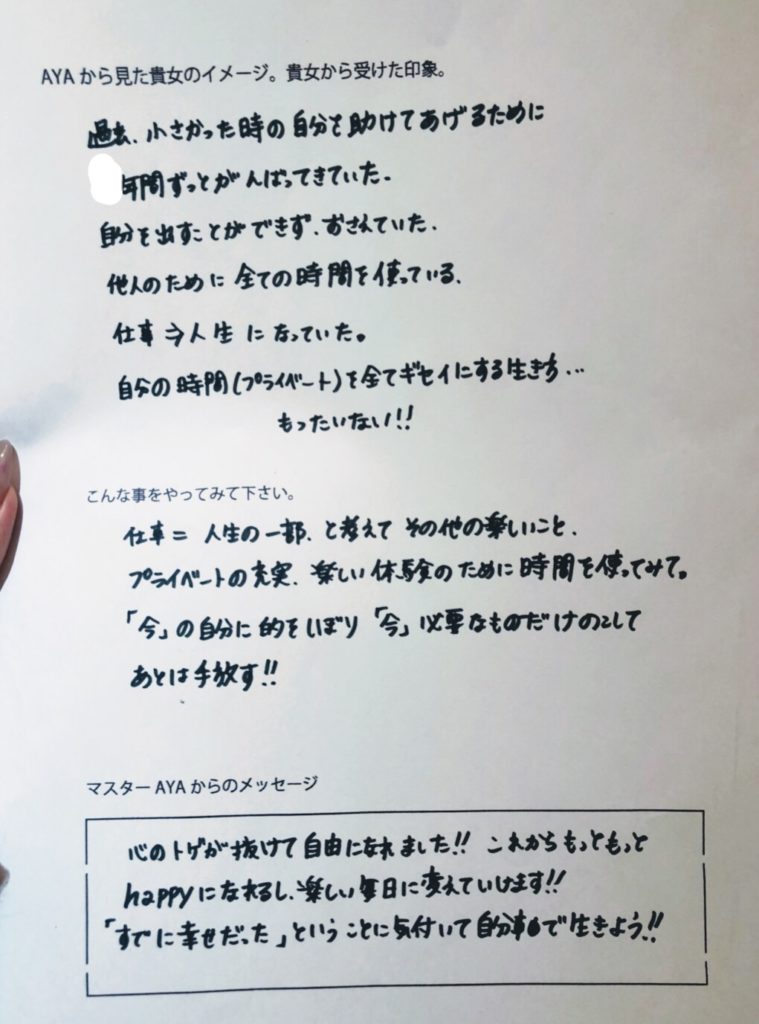 AYAから見た貴女のイメージ。貴女から受けた印象。
過去、小さかった時の自分を助けてあげるために
年間ずっとがんばってきていた。
自分を出すことができず、おさえていた。
他人のために全ての時間を使っている。
仕事⇒人生になっていた。
自分の時間(プライベート)を全てギセイにする生き方…
もったいない!!
こんな事をやってみて下さい。
仕事=人生の一部、と考えてその他の楽しいこと、
プライベートの充実、楽しい体験のために時間を使ってみて。
「今」の自分に的をしぼり「今」必要なものだけのこして
あとは手放す!!
マスターAYAからのメッセージ
心のトゲが抜けて自由になれました!! これからもっともっと
happyになれるし、楽しい毎日に変えていけます!!
「すでに幸せだった」ということに気付いて自分事で生きよう!!